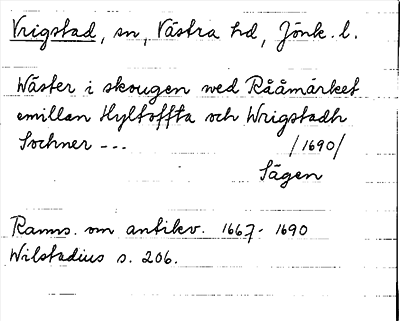 Vrigstad, sn, Västra hd, Jönk. l.
Wäster i skougen wed Rååmärket
emillan Hyltoffta och Wrigstadh
Sochner --- /1690/
Sägen
Ranns. om antikv. 1667-1690
Wilstadius s. 206.